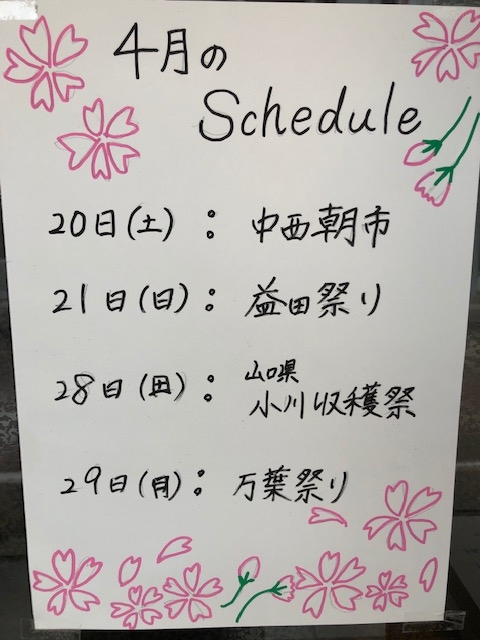 4月の
Schedule
20日(土) : 中西朝市
21日(日) : 益田祭り
28日(日) : 山口県
小川収穫祭
29日(月) : 万葉祭り